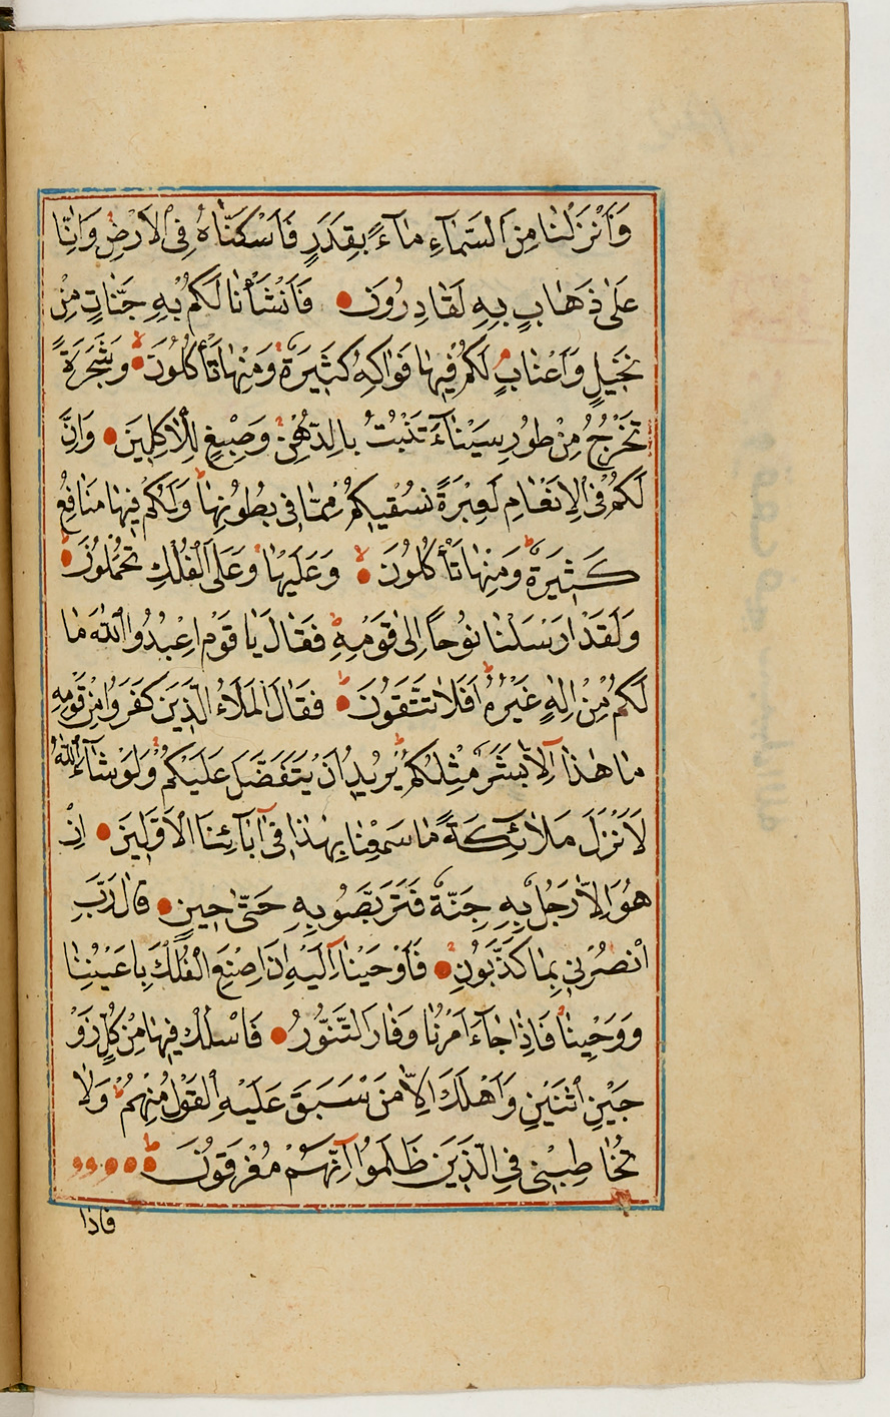 وَاَنْزَلْنَا مِنَ السَّمَآءِ مَآءً بِقَدَرٍ فَاَسْكَنَّاهُ فِى الْاَرْضِ وَاِنَّا
عَلٰى ذَهَابٍ بِهٖ لَقَادِرُونَ فَاَنْشَاْنَا لَكُمْ بِهٖ جَنَّاتٍ مِنْ
نَخٖيلٍ وَاَعْنَابٍ لَكُمْ فٖيهَا فَوَاكِهُ كَثٖيرَةٌ وَمِنْهَا تَاْكُلُونَ وَشَجَرَةً
تَخْرُجُ مِنْ طُورِ سَيْنَآءَ تَنْبُتُ بِالدُّهْنِ وَصِبْغٍ لِلْاٰكِلٖينَ وَاِنَّ
لَكُمْ فِى الْاَنْعَامِ لَعِبْرَةً نُسْقٖيكُمْ مِمَّا فٖى بُطُونِهَا وَلَكُمْ فٖيهَا مَنَافِعُ
كَثٖيرَةٌ وَمِنْهَا تَاْكُلُونَ وَعَلَيْهَا وَعَلَى الْفُلْكِ تُحْمَلُونَ
وَلَقَدْ اَرْسَلْنَا نُوحًا اِلٰى قَوْمِهٖ فَقَالَ يَا قَوْمِ اعْبُدُوا اللّٰهَ مَا
لَكُمْ مِنْ اِلٰهٍ غَيْرُهُ اَفَلَا تَتَّقُونَ فَقَالَ الْمَلَاُ الَّذٖينَ كَفَرُوا مِنْ قَوْمِهٖ
مَا هٰذَٓا اِلَّا بَشَرٌ مِثْلُكُمْ يُرٖيدُ اَنْ يَتَفَضَّلَ عَلَيْكُمْ وَلَوْ شَآءَ اللّٰهُ
لَاَنْزَلَ مَلٰٓئِكَةً مَا سَمِعْنَا بِهٰذَا فٖٓى اٰبَآئِنَا الْاَوَّلٖينَ اِنْ
هُوَ اِلَّا رَجُلٌ بِهٖ جِنَّةٌ فَتَرَبَّصُوا بِهٖ حَتّٰى حٖينٍ قَالَ رَبِّ
انْصُرْنٖى بِمَا كَذَّبُونِ فَاَوْحَيْنَٓا اِلَيْهِ اَنِ اصْنَعِ الْفُلْكَ بِاَعْيُنِنَا
وَوَحْيِنَا فَاِذَا جَآءَ اَمْرُنَا وَفَارَ التَّنُّورُ فَاسْلُكْ فٖيهَا مِنْ كُلٍّ زَوْ
جَيْنِ اثْنَيْنِ وَاَهْلَكَ اِلَّا مَنْ سَبَقَ عَلَيْهِ الْقَوْلُ مِنْهُمْ وَلَا
تُخَاطِبْنٖى فِى الَّذٖينَ ظَلَمُٓوا اِنَّهُمْ مُغْرَقُونَ
فاذا